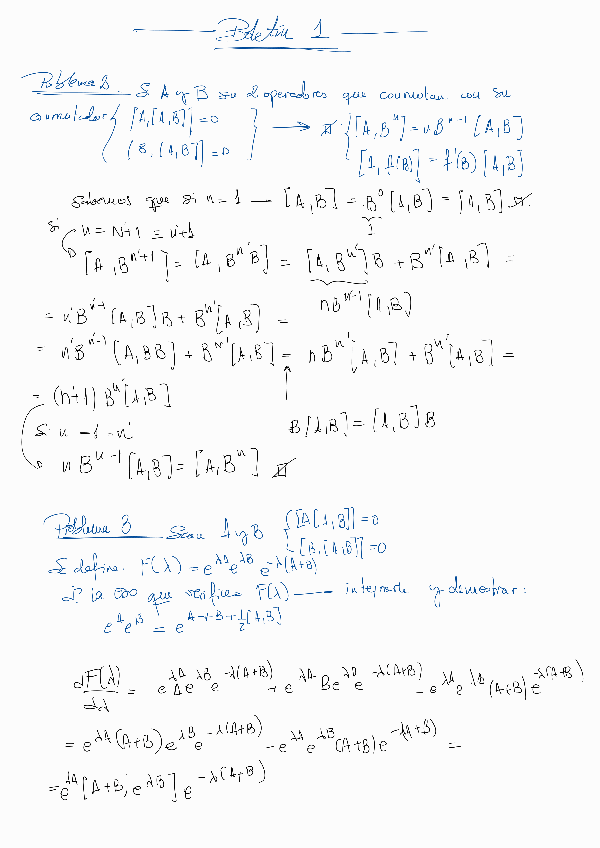 Boletín 1
Problema 2. Si A y B son 2 operadores que conmutan con su
conmutador { [A,[A,B]] = 0 [B,[A,B]] = 0 } → { [A,Bⁿ] = nBⁿ⁻¹ [A,B]
[A, f(B)] = f'(B) [A,B]
Sabemos que si n = 1 — [A,B] = B⁰ [A,B] = [A,B]
1
Si n = n'+1
[A,Bⁿ'⁺¹] = [A,Bⁿ'B] = [A,Bⁿ']B + Bⁿ'[A,B] =
nBⁿ'⁻¹[A,B]
= n'Bⁿ'⁻¹[A,B]B + Bⁿ'[A,B] =
= n'Bⁿ'⁻¹[A,BB] + Bⁿ'[A,B] = nBⁿ'[A,B] + Bⁿ'[A,B] =
= (n'+1) Bⁿ'[A,B]
B[A,B] = [A,B]B
Si n - 1 = n'
n Bⁿ⁻¹[A,B] = [A,Bⁿ]
Problema 3 Sean A y B { [A[A,B]] = 0
[B,[A,B]] = 0
Se define. F(λ) = e^λA e^λB e^-λ(A+B)
que verifica F(λ) ---- integrarla y demostrar:
e^A e^B = e^A+B+½[A,B]
dF(λ)/dλ = e^λA A e^λB e^-λ(A+B) + e^λA B e^λB e^-λ(A+B) - e^λA e^λB (A+B) e^-λ(A+B)
= e^λA (A+B) e^λB e^-λ(A+B) - e^λA e^λB (A+B) e^-λ(A+B) =
= e^λA [A+B, e^λB] e^-λ(A+B)